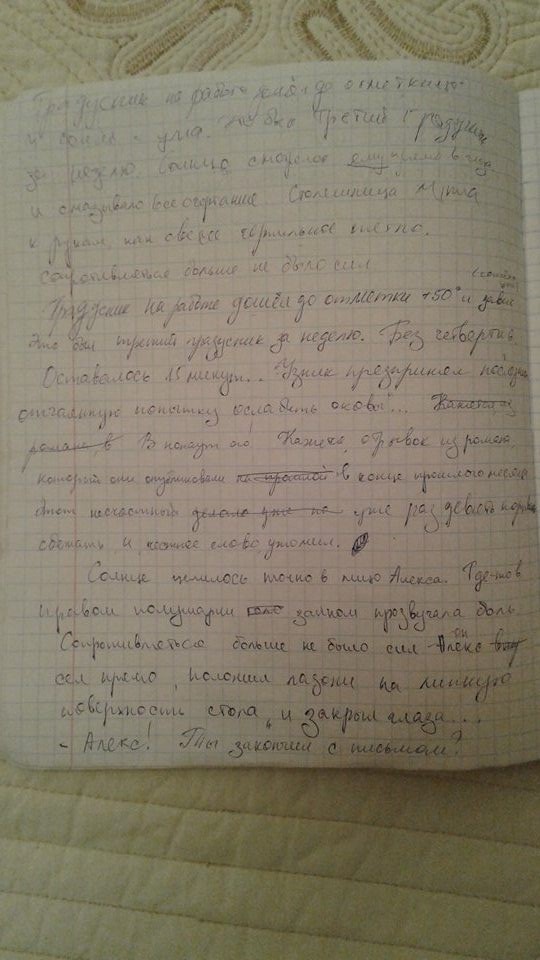 Градусник на работе дошёл до отметки
и сошёл с ума. Это был третий градусник
за неделю. Солнце смотрело ему прямо в глаза
и смазывало все очертания. Столешница липла
к рукам, как свежее чернильное пятно.
сопротивляться больше не было сил
Градусник на работе дошёл до отметки +50° и завис
Это был третий градусник за неделю. Без четверти
Оставалось 15 минут... "Узник предпринял последнюю
отчаянную попытку ослабить оковы"... Кажется из
романа в В попыт Кажется, отрывок из романа
который они опубликовали на прошлой в конце прошлого месяца
Этот несчастный делала уже на уже раз девять пор
сбежать и честное слово утомил.
Солнце целилось точно в лицо Алекса. Где-то в
правом полушарии гонгом прозвучала боль.
Сопротивляться больше не было сил Алекс он
сел прямо, положил ладони на липкую
поверхность стола, и закрыл глаза...
- Алекс! Ты закончил с письмом?